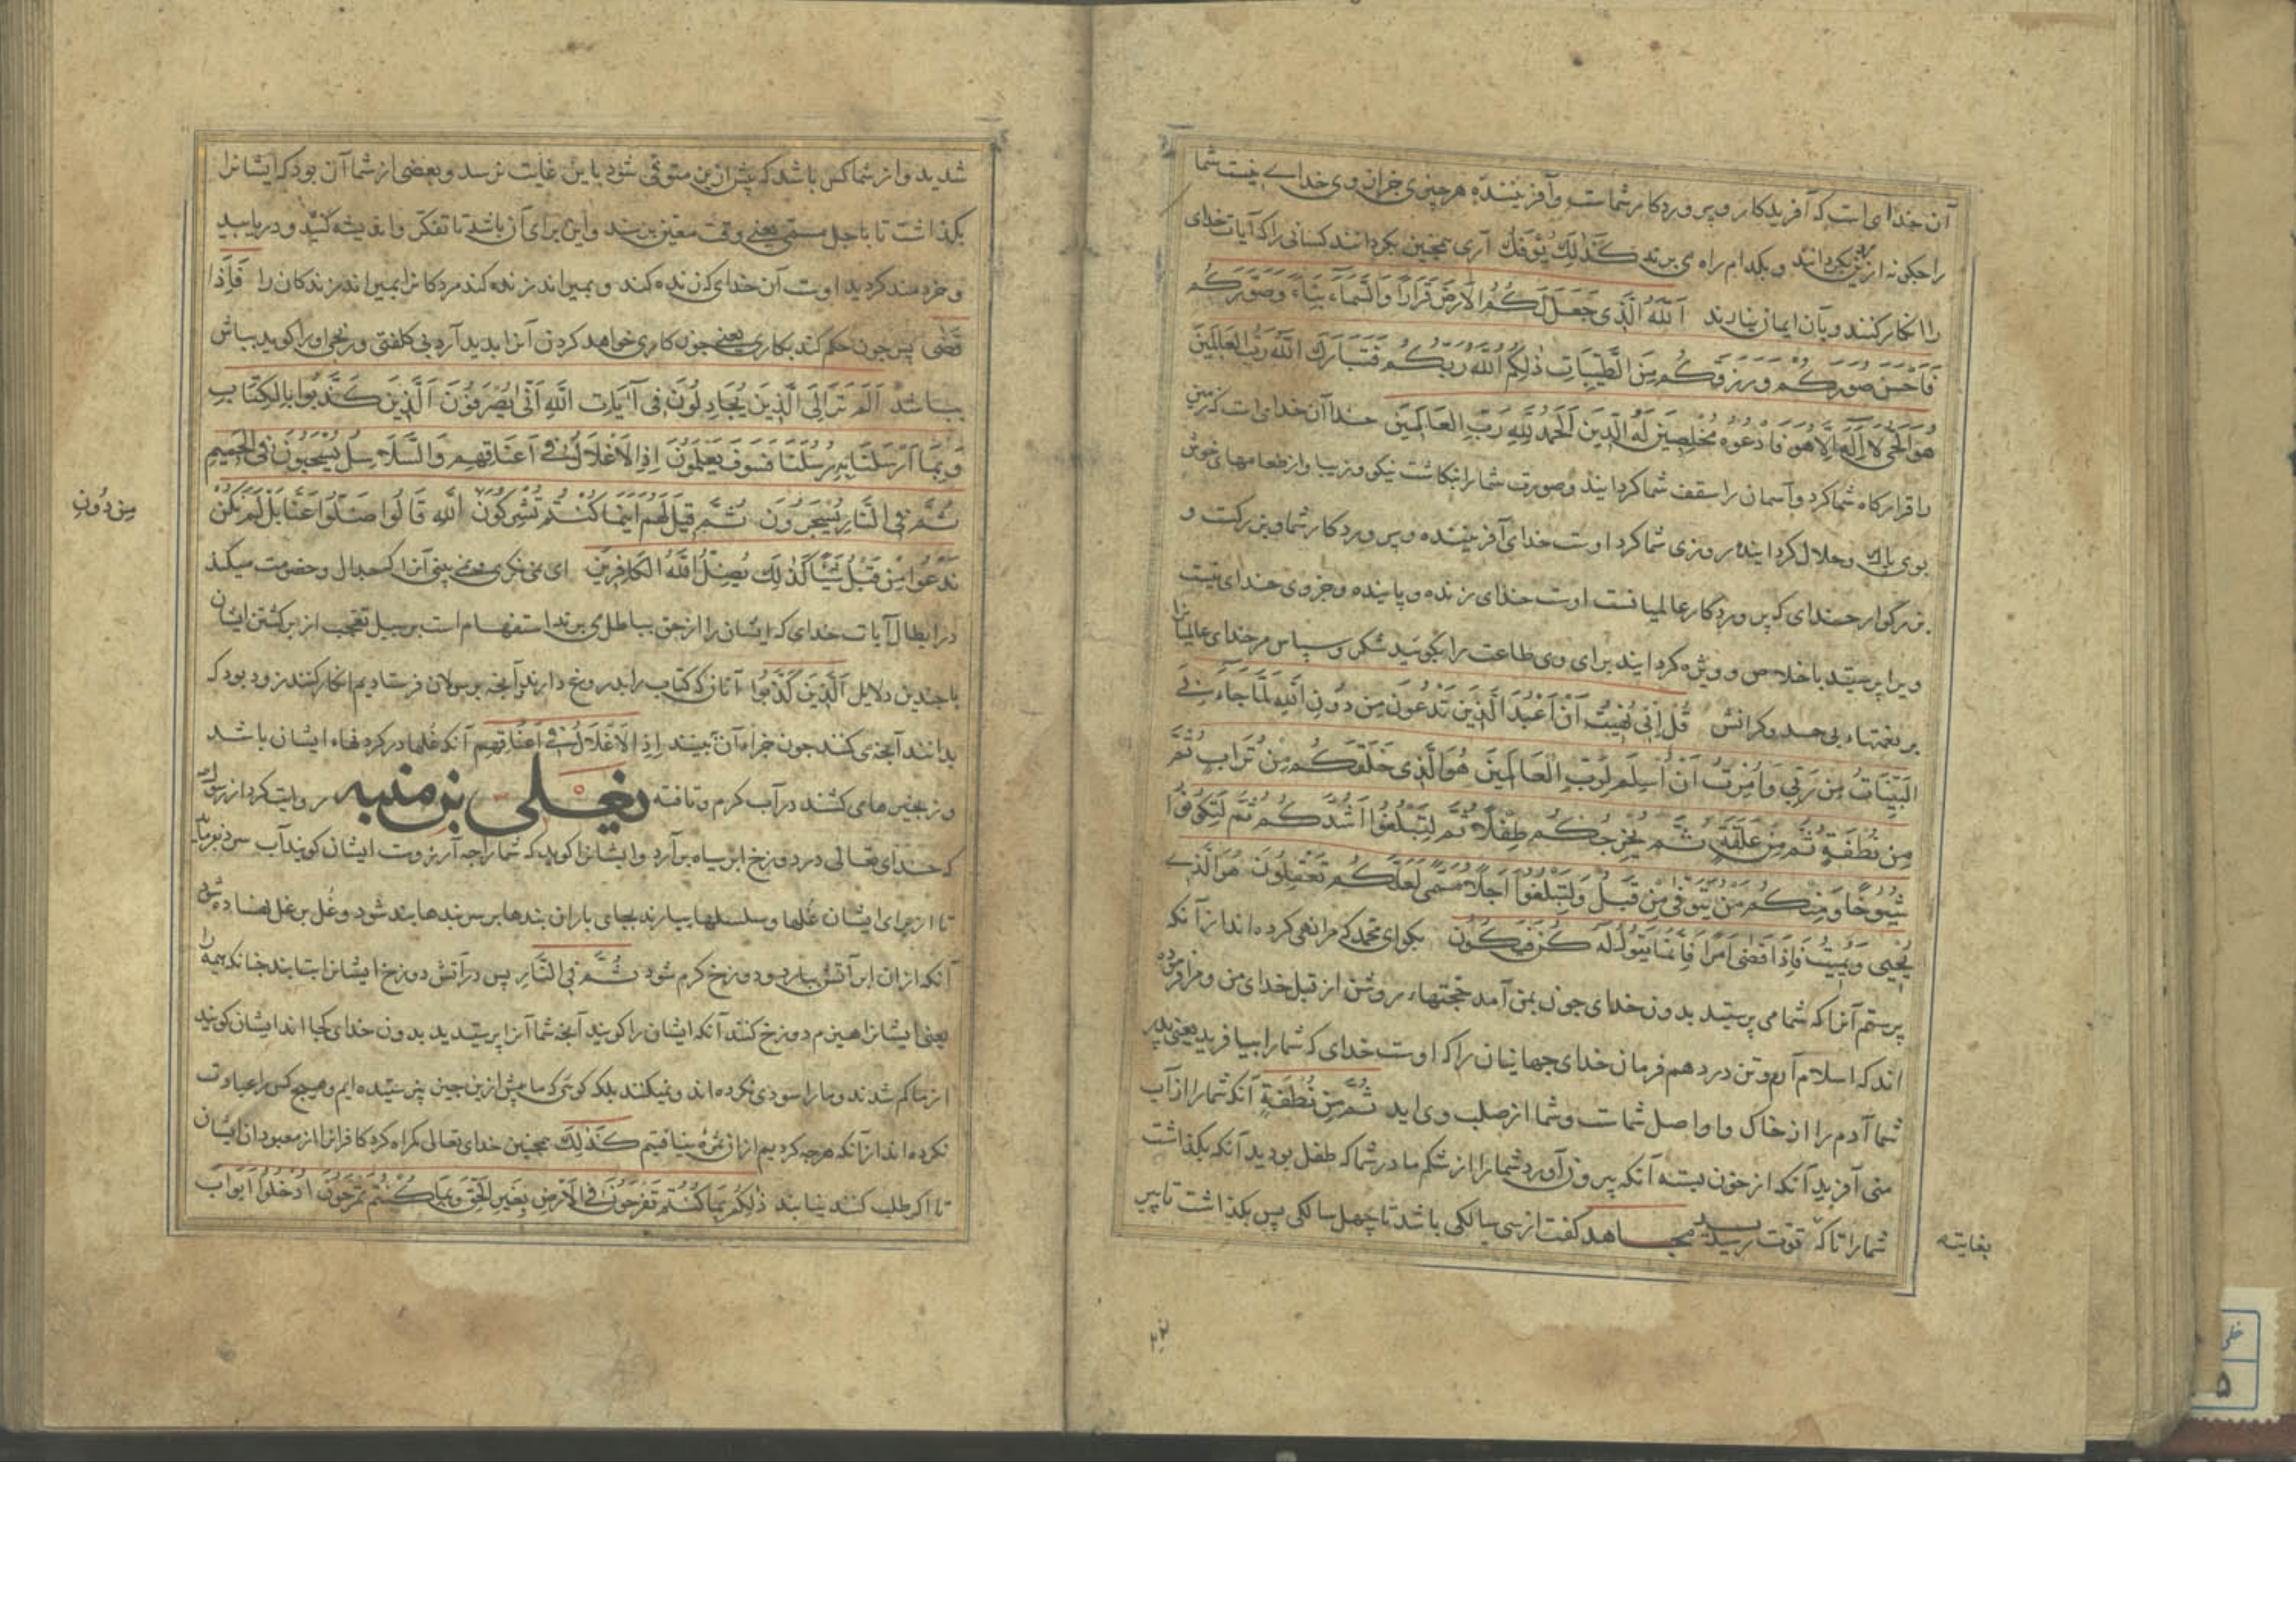 آن خدای است که آفریدکار و پروردکار شماست و آفریننده هر چیزی جز ازان وی خدای نیست شما
را جکونه ازین بکردانند و بکدام راه می برند کَذٰلِكَ یُؤفَكُ آری همچنین بکردانند کسانی را که آیات خدای
را انکار کنند و بآن ایمان نیارند اَللهُ الَّذی جَعَلَ لَكُمُ الاَرضَ قَرَارًا وَالسَّمَاءَ بِنَاءً وَصَوَّرَكُم
فَاَحْسَنَ صُوَرَكُم وَرَزَقَكُم مِنَ الطَّیِّبَاتِ ذٰلِكُمُ اللهُ رَبُّكُم فَتَبَارَكَ اللهُ رَبُّ العَالَمِینَ
هُوَ الحَیُّ لَا اِلٰهَ اِلَّا هُوَ فَادْعُوهُ مُخْلِصِینَ لَهُ الدّینَ اَلحَمدُ لِلّٰهِ رَبِّ العَالَمِینَ خدا آن خدای است که زمین
را قرارکاه شما کرد و آسمان را سقف شما کردانید و صورت شما را بنکاشت نیکو و زیبا و از طعامهای خوش
بوی پاك و حلال کردانیده روزی شما کرد اوست خدای آفریننده و پروردکار شما و بزرکست و
بزرگوار خدای که پروردگار عالمیانست اوست خدای زنده و پاینده و جز وی خدای نیست
ویرا پرستید باخلاص و ویژه کردانید برای وی طاعت را بکوئید شکر و سپاس مر خدای عالمیانرا
بر نعمتهاء بی حد و کرانش قُل اِنّی نُهِیتُ اَنْ اَعْبُدَ الَّذینَ تَدْعُونَ مِن دُونِ اللهِ لَمَّا جَاءَنِیَ
البَیِّنَاتُ مِن رَبّی وَاُمِرتُ اَنْ اُسلِمَ لِرَبِّ العَالَمِینَ هُوَ الَّذی خَلَقَكُم مِنْ تُرَابٍ ثُمَّ
مِن نُطفَةٍ ثُمَّ مِن عَلَقَةٍ ثُمَّ یُخرِجُكُم طِفلًا ثُمَّ لِتَبْلُغُوا اَشُدَّكُم ثُمَّ لِتَكُونُوا
شُیُوخًا وَمِنكُم مَن یُتَوَفّٰی مِن قَبلُ وَلِتَبلُغُوا اَجَلًا مُسَمًّی لَعَلَّكُم تَعقِلُونَ هُوَ الَّذی
یُحیی وَیُمِیتُ فَاِذَا قَضٰی اَمرًا فَاِنَّمَا یَقُولُ لَهُ كُن فَیَكُونُ بکو ای محمد که مرا نهی کرده اند از آنکه
پرستم آنرا که شما می پرستید بدون خدای جون بمن آمد حجتهاء روشن از قبل خدای من و مرا فرموده
اند که اسلام آرم و تن در دهم فرمان خدای جهانیان را که اوست خدای که شما را بیافرید یعنی پدر
شما آدم را از خاك و او اصل شماست و شما از صلب وی اید ثُمَّ مِن نُطفَةٍ آنکه شما را از آب
منی آفرید آنکه از خون بسته آنکه بیرون آورد شما را از شکم مادر شما که طفل بودید آنکه بکذاشت
شما را تا که بقوت رسید مجاهد کفت از سی سالکی باشد تا چهل سالکی پس بکذاشت تا پیر
بغایته
شدید و از شما کس باشد که پیش ازین متوفی شود باین غایت نرسد و بعضی از شما آن بود که ایشانرا
بکذاشت تا باجل مسمی یعنی وقت معین برسند و این برای آن باشد تا تفکر و اندیشه کنید و دریابید
و خردمند کردید اوست آن خدای که زنده کند و بمیراند زنده کند مردکانرا بمیراند زندکان را فَاِذَا
قَضٰی پس جون حکم کند بکاری یعنی جون کاری خواهد کردن آنرا بدید آرد بی کلفتی و رنجی او را کوید بباش
بباشد اَلَم تَرَ اِلَی الَّذینَ یُجَادِلُونَ فی آیَاتِ اللهِ اَنّٰی یُصْرَفُونَ اَلَّذینَ كَذَّبُوا بِالكِتَابِ
وَبِمَا اَرْسَلْنَا بِهِ رُسُلَنَا فَسَوفَ یَعلَمُونَ اِذِ الاَغْلَالُ فی اَعنَاقِهِم وَالسَّلَاسِلُ یُسْحَبُونَ فِی الحَمِیمِ
ثُمَّ فِی النَّارِ یُسْجَرُونَ ثُمَّ قِیلَ لَهُم اَینَمَا كُنتُم تُشرِكُونَ اللهِ قَالُوا ضَلُّوا عَنَّا بَل لَم نَكُن
من دُونِ
نَدعُوا مِن قَبلُ شَیئًا كَذٰلِكَ یُضِلُّ اللهُ الكَافِرِینَ ای می نکری و نمی بینی آنرا که جدال و خصومت میکند
در ابطال آیات خدای که ایشان را از حق بباطل می برند استفهام است بر سبیل تعجب از برکشتن ایشان
با جندین دلایل اَلَّذینَ كَذَّبُوا آنان که کتاب را بدروغ دارند و آنجه برسولان فرستادیم انکار کنند زود بود که
بدانند آنجه می کنند جون جزاء آن ببینند اِذِ الاَغلَالُ فی اَعنَاقِهِم آنکه غلها در کردنهاء ایشان باشد
و زنجیرها می کشند در آب کرم و تافته یعلی بن منبه روایت کرد از رسول
که خدای تعالی در دوزخ ابر سیاه برآرد و ایشانرا کوید که شما را جه آرزوست ایشان کویند آب سرد بفرماید
تا از برای ایشان غلها و سلسلها ببارند بجای باران بندها بر سر بندها بند شود و غل بر غل نهاده شود
آنکه ازان ابر آتش ببارد و دوزخ کرم شود ثُمَّ فِی النَّارِ پس در آتش دوزخ ایشانرا بتابند جنانکه هیمه را
یعنی ایشانرا هیزم دوزخ کنند آنکه ایشان را کویند آنجه شما آنرا پرستیدید بدون خدای کجا اند ایشان کویند
از ما کم شدند و ما را سودی نکرده اند و نمیکنند بلکه کوئی که ما پیش ازین جیز نپرستیده ایم و هیچ کس را عبادت
نکرده اند از آنکه هرجه کردیم ازان ثمره نیافتیم كَذٰلِكَ همجنین خدای تعالی کمراه کرد کافرانرا از معبودان ایشان
تا اکر طلب کنند نیابند ذٰلِكُم بِمَا كُنتُم تَفْرَحُونَ فِی الاَرضِ بِغَیرِ الحَقِّ وَبِمَا كُنتُم تَمْرَحُونَ اُدْخُلُوا اَبوَابَ